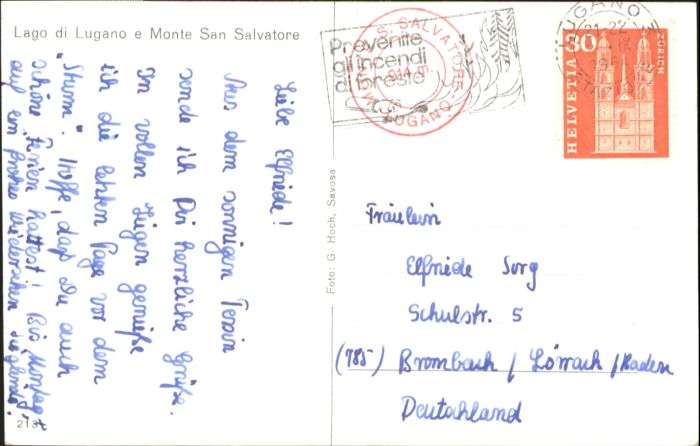 Lago di Lugano e Monte San Salvatore
Liebe Elfriede!
Aus dem sonnigen Tessin
sende ich Dir herzliche Grüße.
In vollen Zügen genieße
ich die letzten Tage vor dem
"Sturm". Hoffe, daß Du auch
schöne Ferien hattest! Bis Montag
auf ein frohes Wiedersehen
218
Foto: G. Hoch, Savosa
Prevenite
gli incendi
di foreste
S. SALVATORE
LUGANO
LUGANO
HELVETIA
30
ZÜRICH
Fräulein
Elfriede Sorg
Schulstr. 5
(785) Brombach / Lörrach / Baden
Deutschland